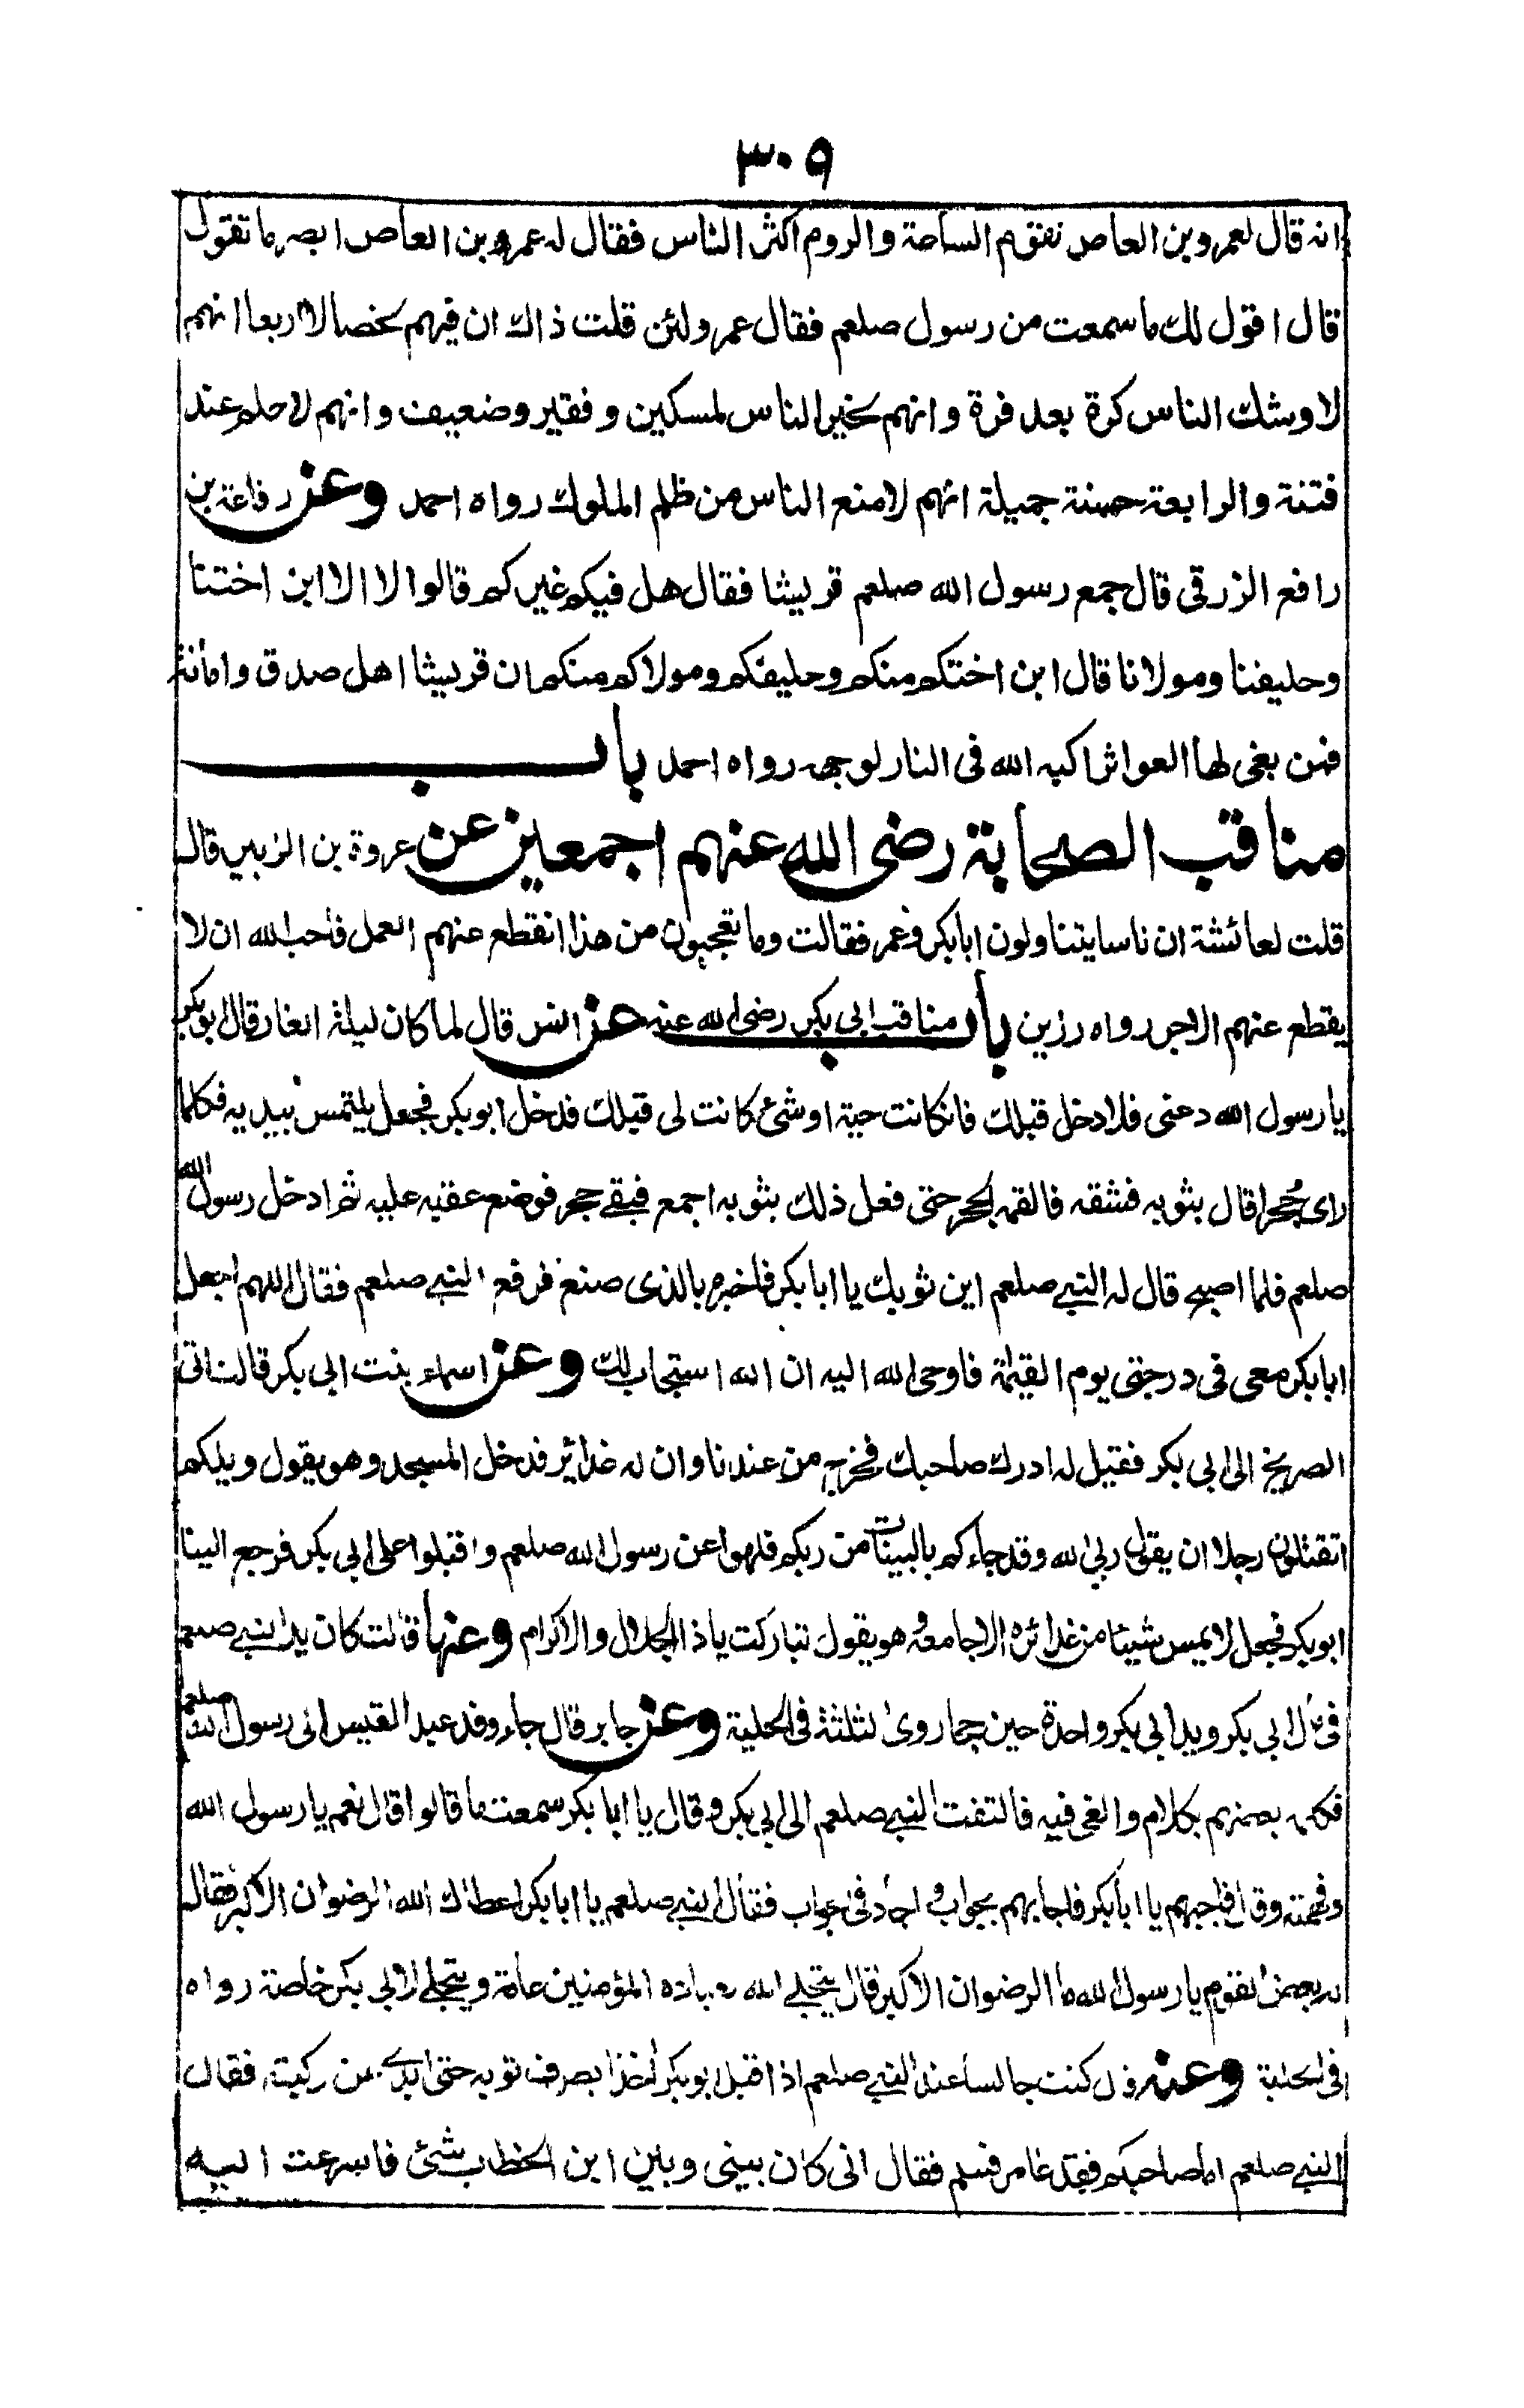 ٣٠٩
انه قال لعمرو بن العاص تقوم الساعة والروم اكثر الناس فقال له عمرو بن العاص ابصر ما تقول
قال اقول لك ما سمعت من رسول صلعم فقال عمرو لئن قلت ذاك ان فيهم لخصالا اربعا انهم
لاوشك الناس كرة بعد فرة وانهم لخير الناس لمسكين وفقير وضعيف وانهم لاحلم عند
فتنة والرابعة حسنة جميلة انهم لامنع الناس من ظلم الملوك رواه احمد وعن رفاعة بن
رافع الزرقى قال جمع رسول الله صلعم قريشا فقال هل فيكم غيركم قالوا لا الا ابن اختنا
وحليفنا ومولانا قال ابن اختكم منكم وحليفكم ومولاكم منكم ان قريشا اهل صدق وامانة
فمن بغى لها العواثر اكبه الله فى النار لوجهه رواه احمد باب
مناقب الصحابة رضى الله عنهم اجمعين عن عروة بن الزبير قال
قلت لعائشة ان ناسا يتناولون ابا بكر وعمر فقالت وما تعجبون من هذا انقطع عنهم العمل فاحب الله ان لا
يقطع عنهم الاجر رواه رزين باب مناقب ابى بكر رضى الله عنه عن انس قال لما كان ليلة الغار قال ابو بكر
يا رسول الله دعنى فلادخل قبلك فان كانت حية او شئ كانت لى قبلك فدخل ابو بكر فجعل يلتمس بيديه فكلما
راى جُحرا قال بثوبه فشقه فالقمه الجحر حتى فعل ذلك بثوبه اجمع فبقى جحر فوضع عقبه عليه ثم ادخل رسول الله
صلعم فلما اصبح قال له النبى صلعم اين ثوبك يا ابا بكر فاخبره بالذى صنع فرفع النبى صلعم فقال اللهم اجعل
ابا بكر معى فى درجتى يوم القيمة فاوحى الله اليه ان الله استجاب لك وعن اسماء بنت ابى بكر قالت اتى
الصريخ الى ابى بكر فقيل له ادرك صاحبك فخرج من عندنا وان له غدائر فدخل المسجد وهو يقول ويلكم
اتقتلون رجلا ان يقول ربى الله وقد جاءكم بالبينات من ربكم فلهوا عن رسول الله صلعم واقبلوا على ابى بكر فرجع الينا
ابو بكر فجعل لا يمس شيئا من غدائره الا جامعه وهو يقول تباركت يا ذا الجلال والاكرام وعنها قالت كان يد النبى صلعم
فى مال ابى بكر ويد ابى بكر واحدة حين حجا روى الثلثة فى الحلية وعن جابر قال جاء وفد عبد القيس الى رسول الله صلعم
فتكلم بعضهم بكلام والغى فيه فالتفت النبى صلعم الى ابى بكر وقال يا ابا بكر سمعت ما قالوا قال نعم يا رسول الله
وفهمته وقال فاجبهم يا ابا بكر فاجابهم بجواب واجاد فى الجواب فقال النبى صلعم يا ابا بكر اعطاك الله الرضوان الاكبر فقال
له بعض القوم يا رسول الله ما الرضوان الاكبر قال يتجلى الله لعباده المؤمنين عامة ويتجلى لابى بكر خاصة رواه
فى الحلية وعنه قال كنت جالسا عند النبى صلعم اذ اقبل ابو بكر اخذا بصرف ثوبه حتى ابدى من ركبته فقال
النبى صلعم اما صاحبكم فقد غامر فسلم فقال انى كان بينى وبين ابن الخطاب شئ فاسرعت اليه